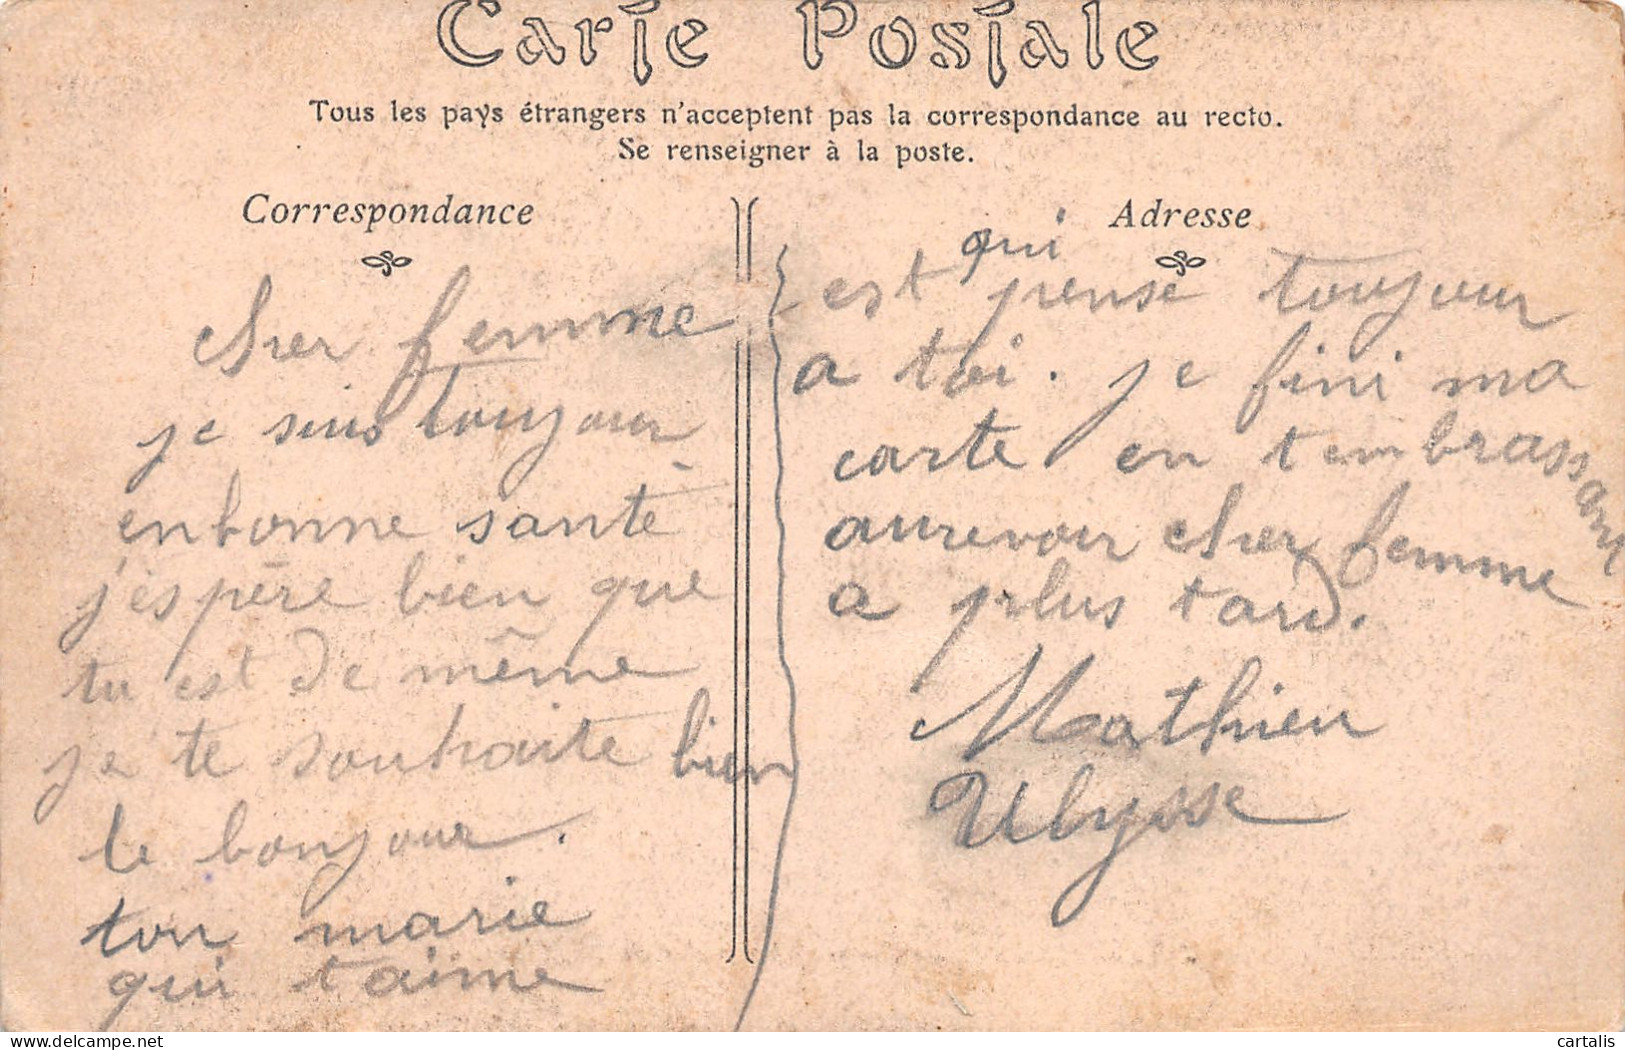 Carte Postale
Tous les pays étrangers n'acceptent pas la correspondance au recto.
Se renseigner à la poste.
Correspondance
cher femme
je suis toujour
en bonne santé
j'espère bien que
tu est de même
je te souhaite bien
le bonjour.
ton marie
qui t'aime
Adresse
qui
est pense toujour
a toi. je fini ma
carte en tembrassant
aurevoir cher femme
a plus tard.
Mathieu
Ulysse
delcampe.net
cartalis